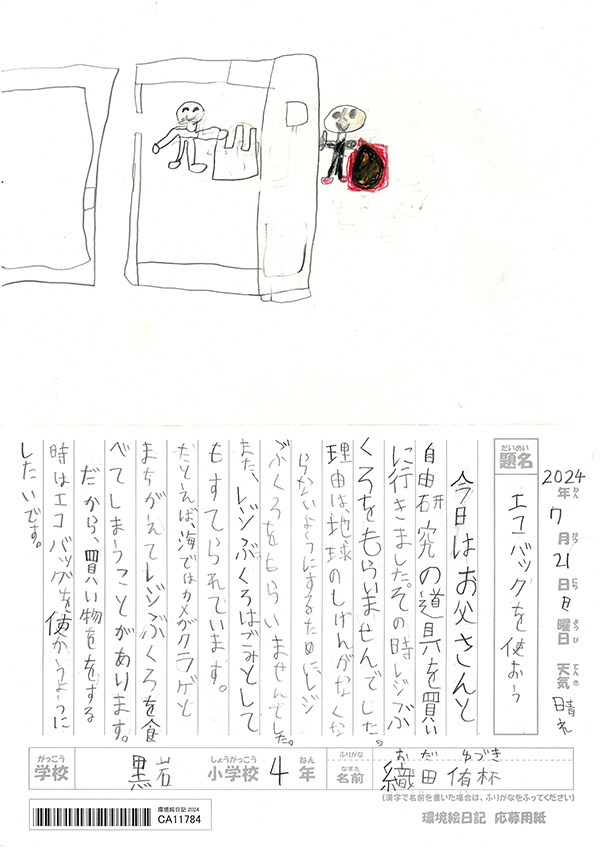 2024年7月21日日曜日 天気 晴れ
ねん がつ にち ようび てんき
だいめい
題名 エコバックを使おう
今日はお父さんと
自由研究の道具を買い
に行きました。その時レジぶ
くろをもらいませんでした。
理由は地球のしげんがなくな
らないようにするためにレジ
ぶくろをもらいませんでした。
また、レジぶくろはごみとして
もすてられています。
たとえば、海ではカメがクラゲと
まちがえてレジぶくろを食
べてしまうことがあります。
だから、買い物ををする
時はエコバッグを使かうように
したいです。
がっこう しょうがっこう ねん ふりがな おだ ゆづき
学校 黒岩 小学校 4年 なまえ 名前 織田侑杯
(漢字で名前を書いた場合は、ふりがなをふってください)
環境絵日記 2024
CA11784
環境絵日記 応募用紙